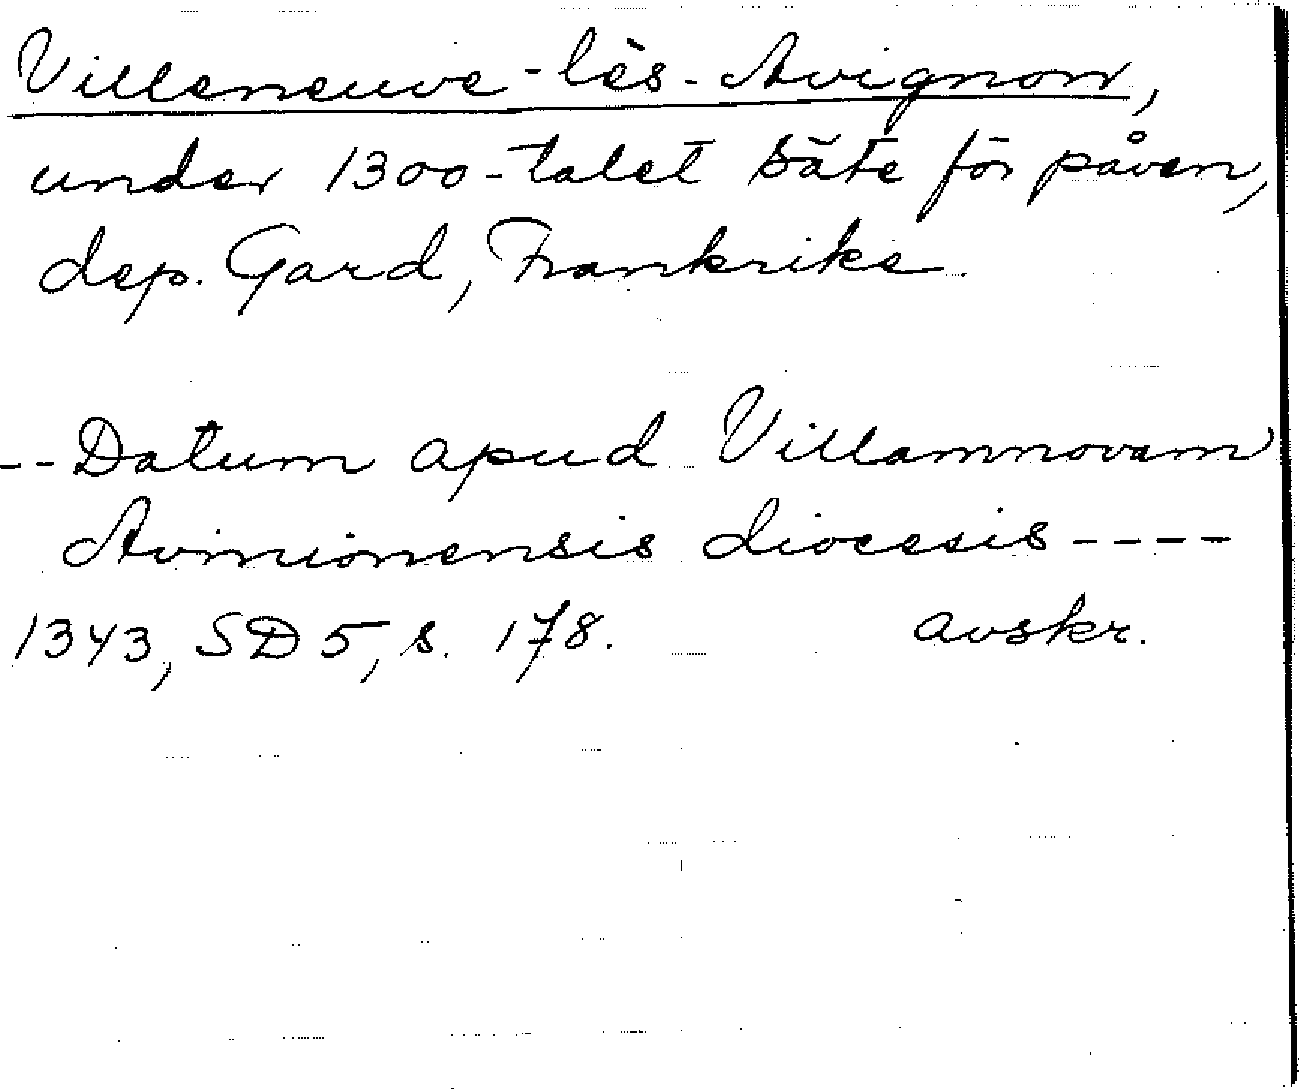 Villeneuve-lès-Avignon,
under 1300-talet säte för påven,
dep. Gard, Frankrike
--Datum apud Villamnovam
Avinionensis diocesis----
1343, SD 5, s. 178. avskr.